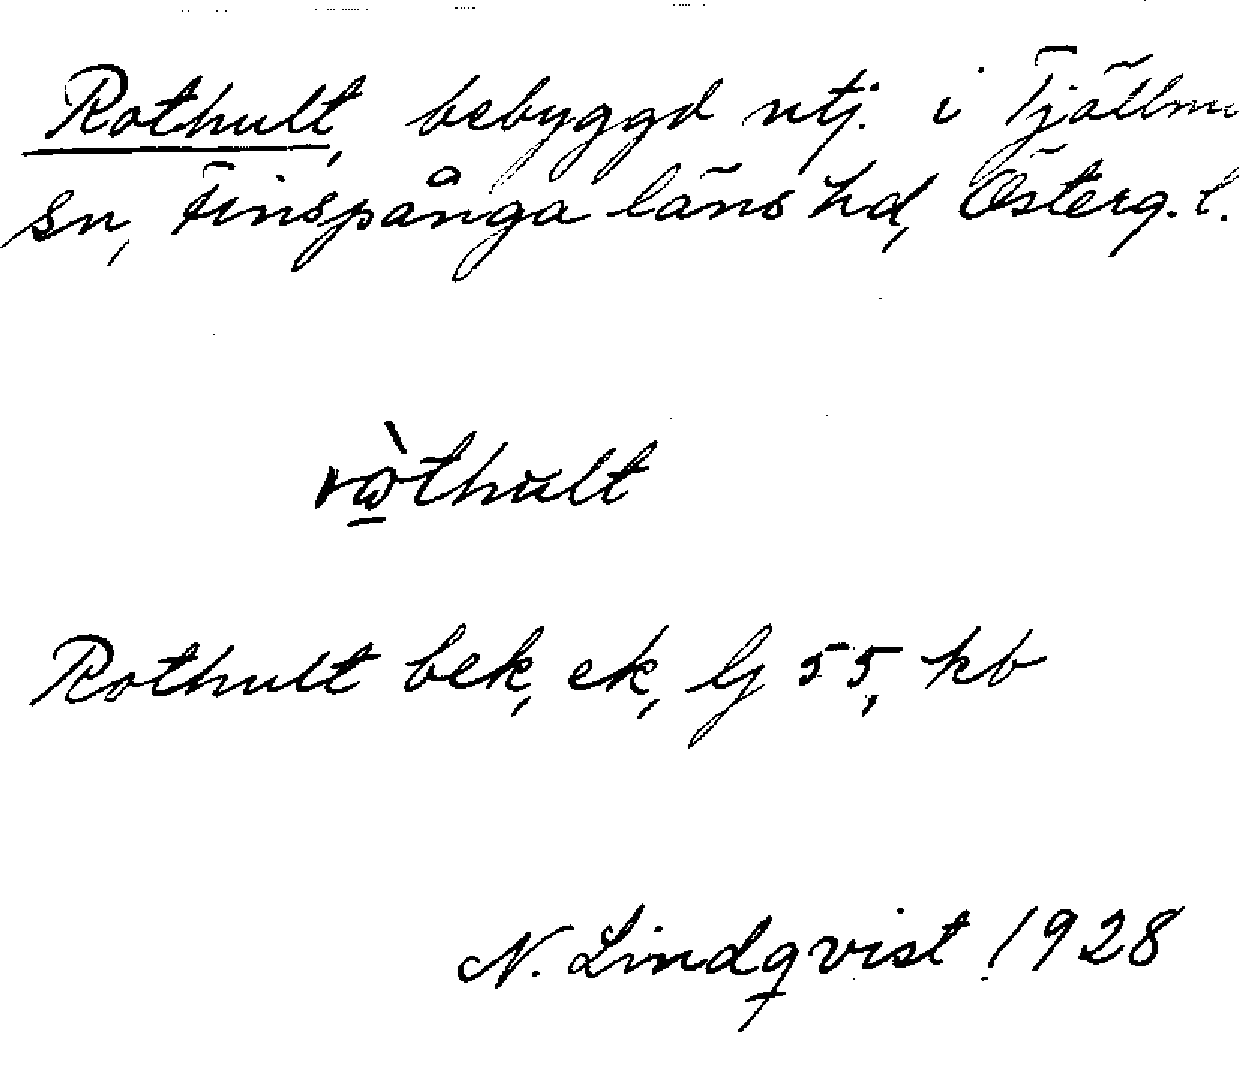 Rothult, bebyggd utj. i Tjällmo
sn, Finspånga läns hd, Österg. l.
Rothult bek, ek, lj 55, kb
N. Lindqvist 1928